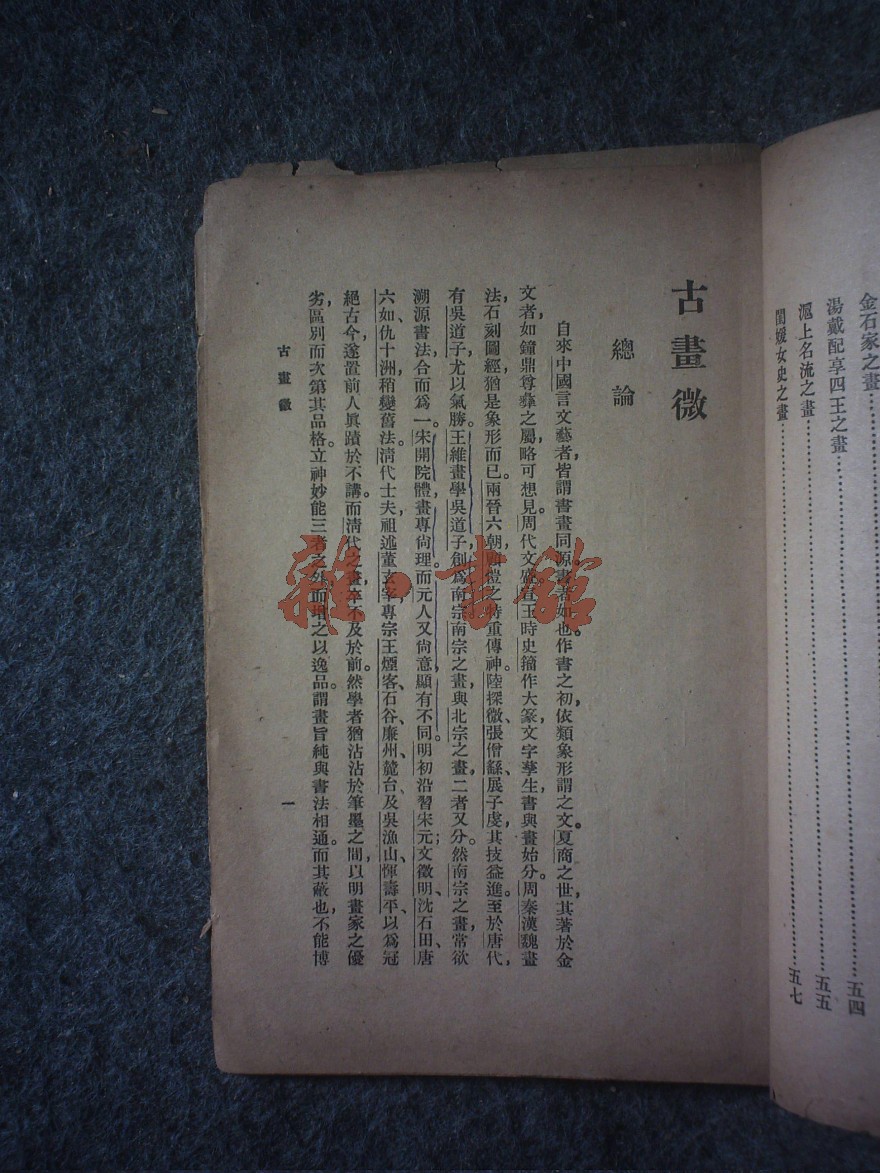 金石家之畫………
湯戴配享四王之畫………五四
滬上名流之畫………五五
閨媛女史之畫………五七
古畫微
總論
自來中國言文藝者，皆謂書畫同源。書者如也。作書之初，依類象形謂之文。夏商之世，其著於金
文者，如鐘鼎尊彝之屬，略可想見。周代文盛，宣王時史籀作大篆，文字孳生，書與畫始分。周秦漢魏畫
法，石刻圖經，猶是象形而已。兩晉六朝，
之時重傳神。陸探微、張僧繇、展子虔，其技益進。至於唐代，
有吳道子，尤以氣勝。王維畫學吳道子，創爲南宗。南宗之畫，與北宗之畫，二者又分。然南宗之畫，常欲
溯源書法，合而爲一。宋開院體，畫專尚理。而元人又尚意，顯有不同。明初沿習宋元；文徵明、沈石田、唐
六如、仇十洲，稍變舊法。清代士夫，祖述董玄宰，專宗王煙客、石谷、廉州、麓台，及吳漁山、惲壽平，以爲冠
絕古今，遂置前人眞蹟於不講。而清代之畫，率不及於前。然學者猶沾沾於筆墨之間，以明畫家之優
劣，區別而次第其品格。立神妙能三者之外，而增之以逸品。謂畫旨純與書法相通。而其蔽也，不能博
古畫微
一
雜·書館